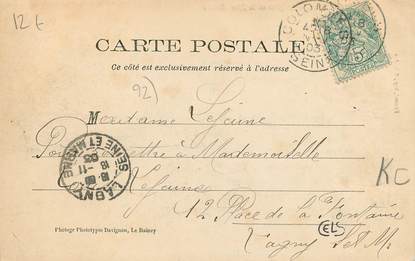 12 t
CARTE POSTALE
Ce côté est exclusivement réservé à l'adresse
COLOMBES
SEINE
5
92
Madame Lejeune
Pour remettre à Mademoiselle
Lejeune
12 Place de la Fontaine
Lagny S et M.
LAGNY
SEINE ET MARNE
18 -11
03
KC
ELS
Photogr Phototypie Davignon, Le Raincy